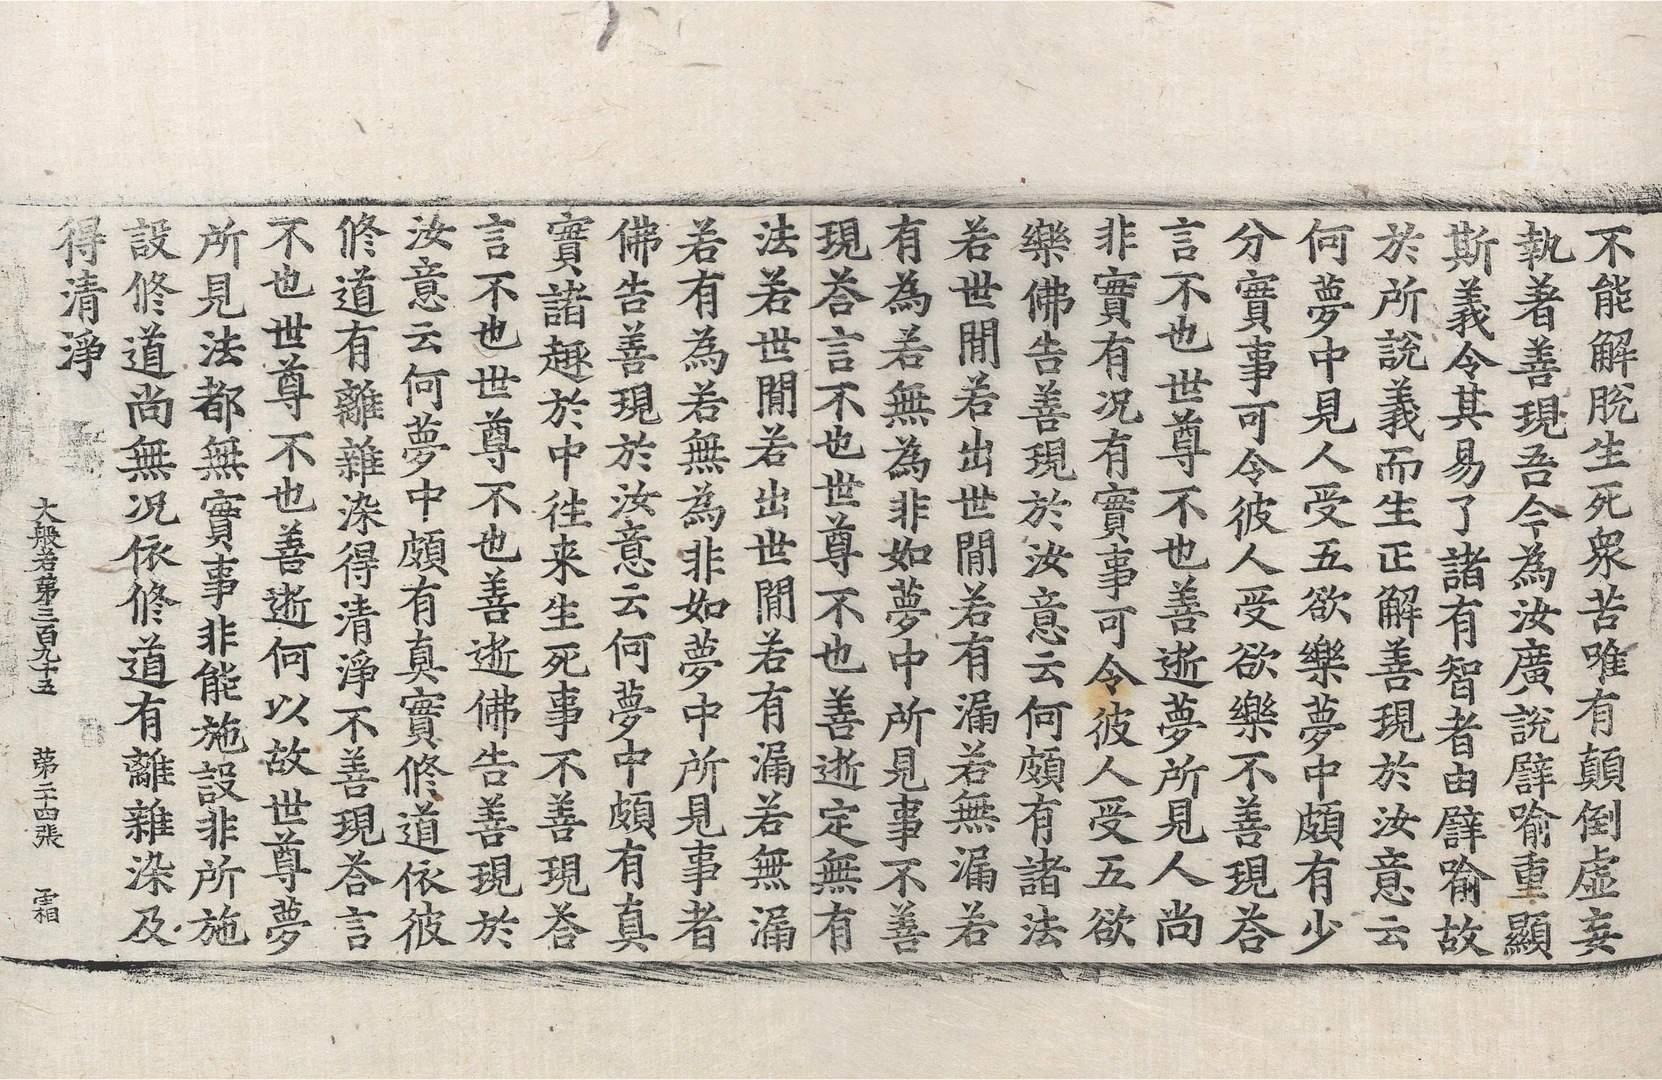 不能解脫生死衆苦唯有顛倒虛妄
執著善現吾今為汝廣說譬喻重顯
斯義令其易了諸有智者由譬喻故
於所說義而生正解善現於汝意云
何夢中見人受五欲樂夢中頗有少
分實事可令彼人受欲樂不善現荅
言不也世尊不也善逝夢所見人尚
非實有况有實事可令彼人受五欲
樂佛告善現於汝意云何頗有諸法
若世閒若出世閒若有漏若無漏若
有為若無為非如夢中所見事不善
現荅言不也世尊不也善逝定無有
法若世閒若出世閒若有漏若無漏
若有為若無為非如夢中所見事者
佛告善現於汝意云何夢中頗有真
實諸趣於中往来生死事不善現荅
言不也世尊不也善逝佛告善現於
汝意云何夢中頗有真實修道依彼
修道有離雜染得清淨不善現荅言
不也世尊不也善逝何以故世尊夢
所見法都無實事非能施設非所施
設修道尚無况依修道有離雜染及
得清淨
大般若第三百九十五 第二十四張 孟相